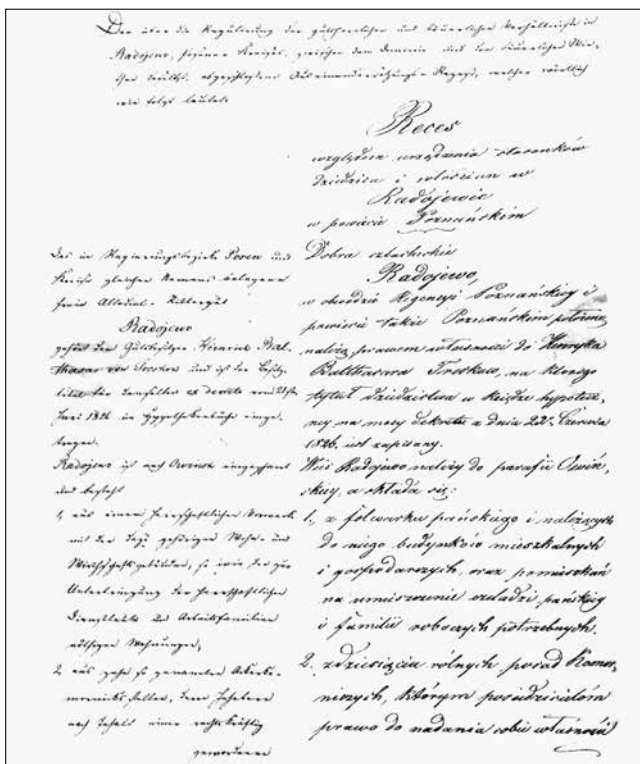 Der über die Regulirung der gutsherrlichen und bäuerlichen Verhältnisse in
Radojewo, Posener Kreises, zwischen dem Dominio und den bäuerlichen Wir-
then daselbst, abgeschlossene Auseinandersetzungs-Rezeß, welcher wörtlich
wie folgt lautet:
Reces
względem urządzenia stosunków
dziedzica i włościan w
Radojewie
w powiecie Poznańskim
Das im Regierungsbezirk Posen und
Kreise gleichen Namens belegene
freie Allodial-Rittergut
Radojewo
gehört dem Gutsbesitzer Heinrich Bal-
thasar von Treskow und ist der Besitz-
titel für denselben ex decreto vom 22sten
Juni 1826 im Hypothekenbuche einge-
tragen.
Radojewo ist nach Owinsk eingepfarrt
und besteht
1, aus einem herrschaftlichen Vorwerk
mit den dazu gehörigen Wohn- und
Wirthschaftsgebäuden, so wie den zur
Unterbringung der herrschaftlichen
Dienstleute und Arbeitsfamilien
nöthigen Wohnungen,
2, aus zehn so genannten
stellen, deren Inhabern
nach Inhalt einer rechtskräftig
gewordenen
Dobra szlacheckie
Radojewo,
w obwodzie Regencyi Poznańskiey i
powiecie także Poznańskim położone,
należą prawem własności do Henryka
Balthasara Treskow, na którego
tytuł dziedzictwa w księdze hypotecz,
ney na mocy dekretu z dnia 22o Czerwca
1826. iest zapisany.
Wieś Radojewo należy do parafii Owiń,
skiey, a składa się:
1., z folwarku pańskiego i należących
do niego budynków mieszkalnych
i gospodarczych, oraz pomieszkań
na umieszczenie czeladzi pańskiey
i familii roboczych potrzebnych.
2. z dziesięciu rólnych posad Komor,
niczych, którym posiedzicielóm
prawo do nadania sobie własności